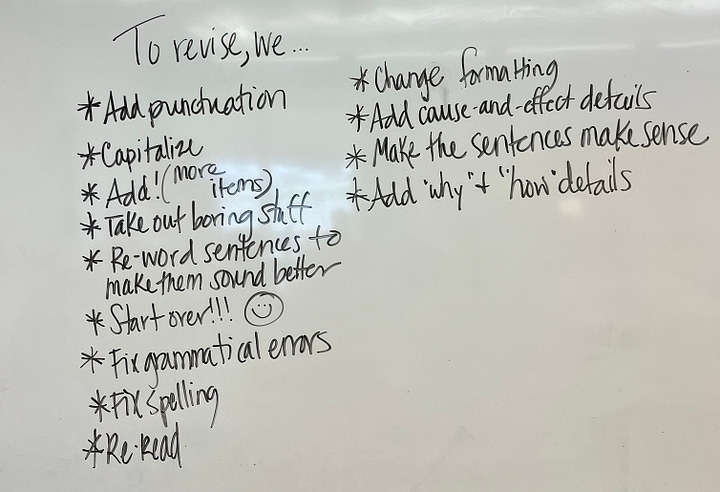 To revise, we...
*Add punctuation
*Capitalize
*Add! (more
items)
*Take out boring stuff
*Re-word sentences to
make them sound better
*Start over!!! ☺
*Fix grammatical errors
*Fix spelling
*Re-Read
*Change formatting
*Add cause-and-effect details
*Make the sentences make sense
*Add "why" + "how" details